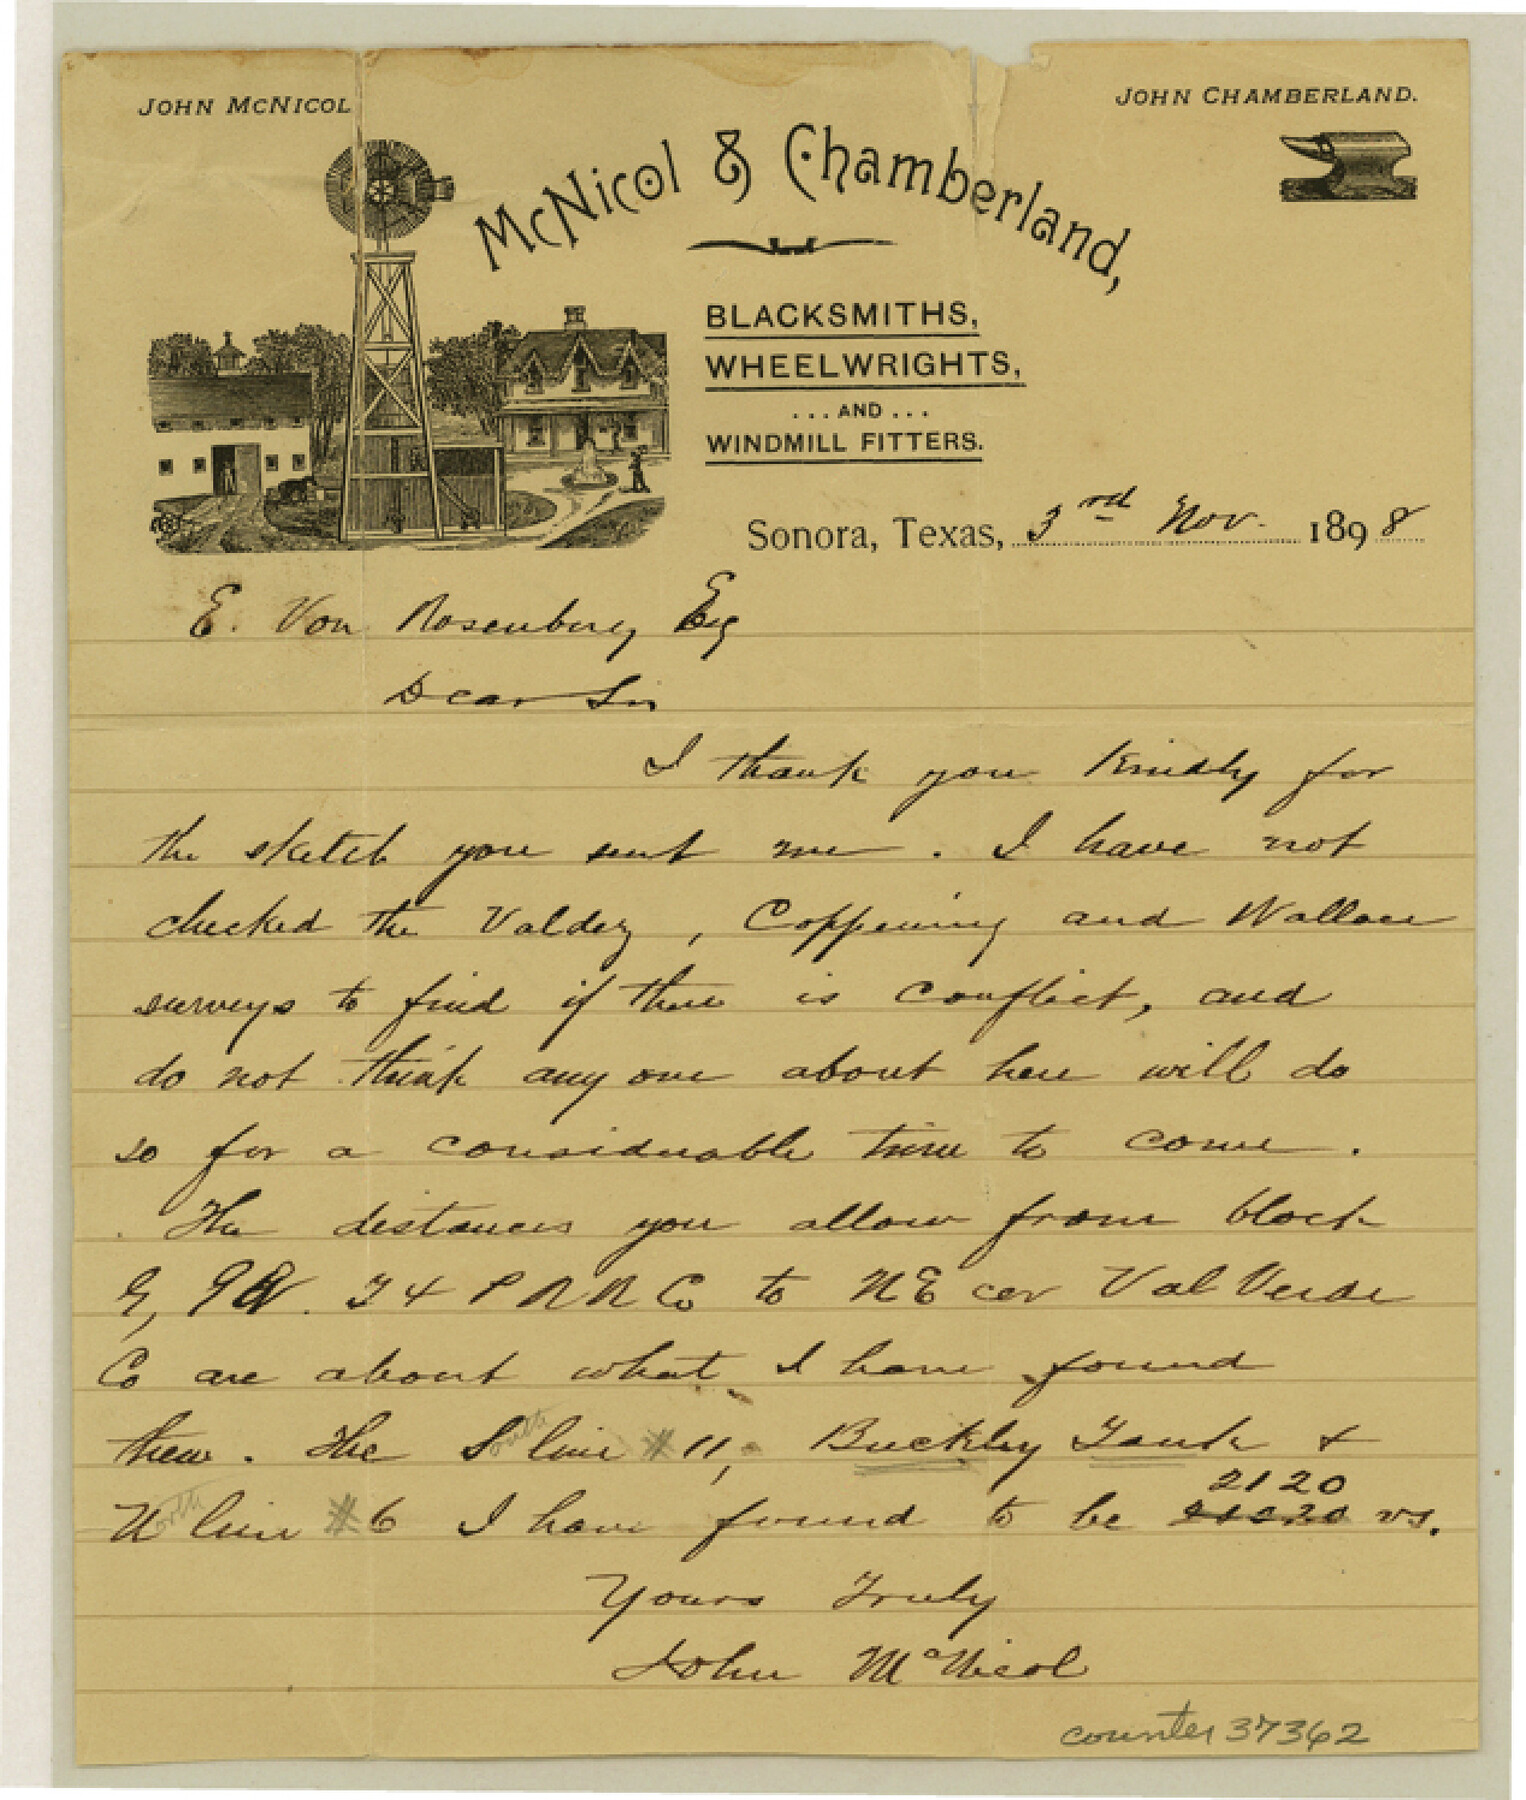 JOHN MCNICOL
JOHN CHAMBERLAND.
McNicol & Chamberland,
BLACKSMITHS,
WHEELWRIGHTS,
...AND...
WINDMILL FITTERS.
Sonora, Texas, 3rd Nov. 1898
E. Von Rosenberg Esq
Dear Sir
I thank you kindly for
the sketch you sent me. I have not
checked the Valdez, Coppening and Wallace
surveys to find if there is conflict, and
do not think any one about here will do
so for a considerable time to come.
The distances you allow from block
G, T & P R R Co to N E cor Val Verde
Co are about what I have found
them. The South line # 11, Buckley Tank &
North line # 6 I have found to be 2120 vs.
Yours Truly
John McNicol
counter 37362